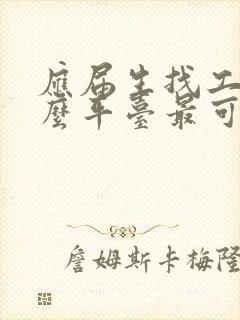 應届生找工
麽平臺最可
詹姆斯卡梅隆